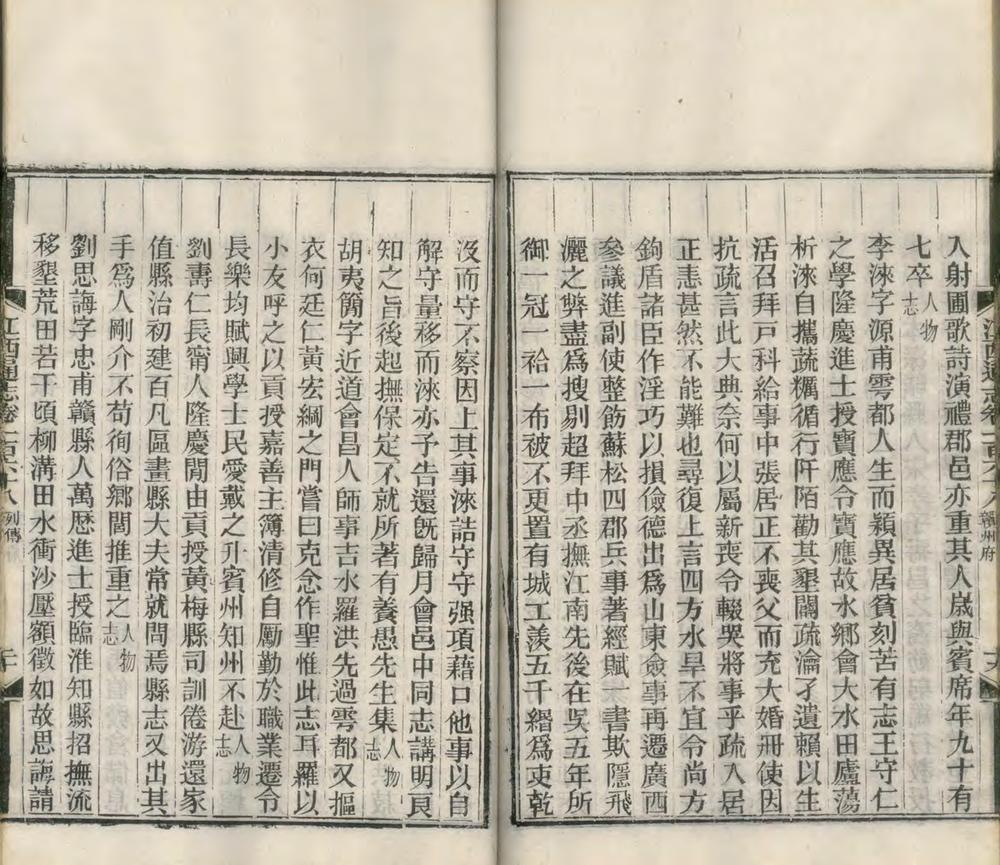 入射圃歌詩演禮郡邑亦重其人歲與賓席年九十有
七卒人物志
李淶字源甫雩都人生而穎異居貧刻苦有志王守仁
之學隆慶進士授寶應令寶應故水鄉會大水田廬蕩
析淶自攜蔬糲循行阡陌勸其墾闢疏瀹孑遺賴以生
活召拜戸科給事中張居正不喪父而充大婚冊使因
抗疏言此大典奈何以屬新喪令輟哭將事乎疏入居
正恚甚然不能難也尋復上言四方水旱不宜令尚方
鉤盾諸臣作淫巧以損儉德出爲山東僉事再遷廣西
參議進副使整飭蘇松四郡兵事著經賦一書欺隱飛
灑之弊盡爲搜剔超拜中丞撫江南先後在吳五年所
御一冠一袷一布被不更置有城工羨五千緡爲吏乾
沒而守不察因上其事淶詰守守强項藉口他事以自
解守量移而淶亦予告還旣歸月會邑中同志講明良
知之旨後起撫保定不就所著有養愚先生集人物志
胡夷簡字近道會昌人師事吉水羅洪先過雩都又摳
衣何廷仁黃宏綱之門嘗曰克念作聖惟此志耳羅以
小友呼之以貢授嘉善主簿清修自勵勤於職業遷令
長樂均賦興學士民愛戴之升賓州知州不赴人物志
劉壽仁長甯人隆慶閒由貢授黃梅縣司訓倦游還家
值縣治初建百凡區畫縣大夫常就問焉縣志又出其
手爲人剛介不苟徇俗鄉閭推重之人物志
劉思誨字忠甫贛縣人萬歷進士授臨淮知縣招撫流
移墾荒田若干頃柳溝田水衝沙壓額徵如故思誨請
江西通志卷一百六十八 列傳
贛州府